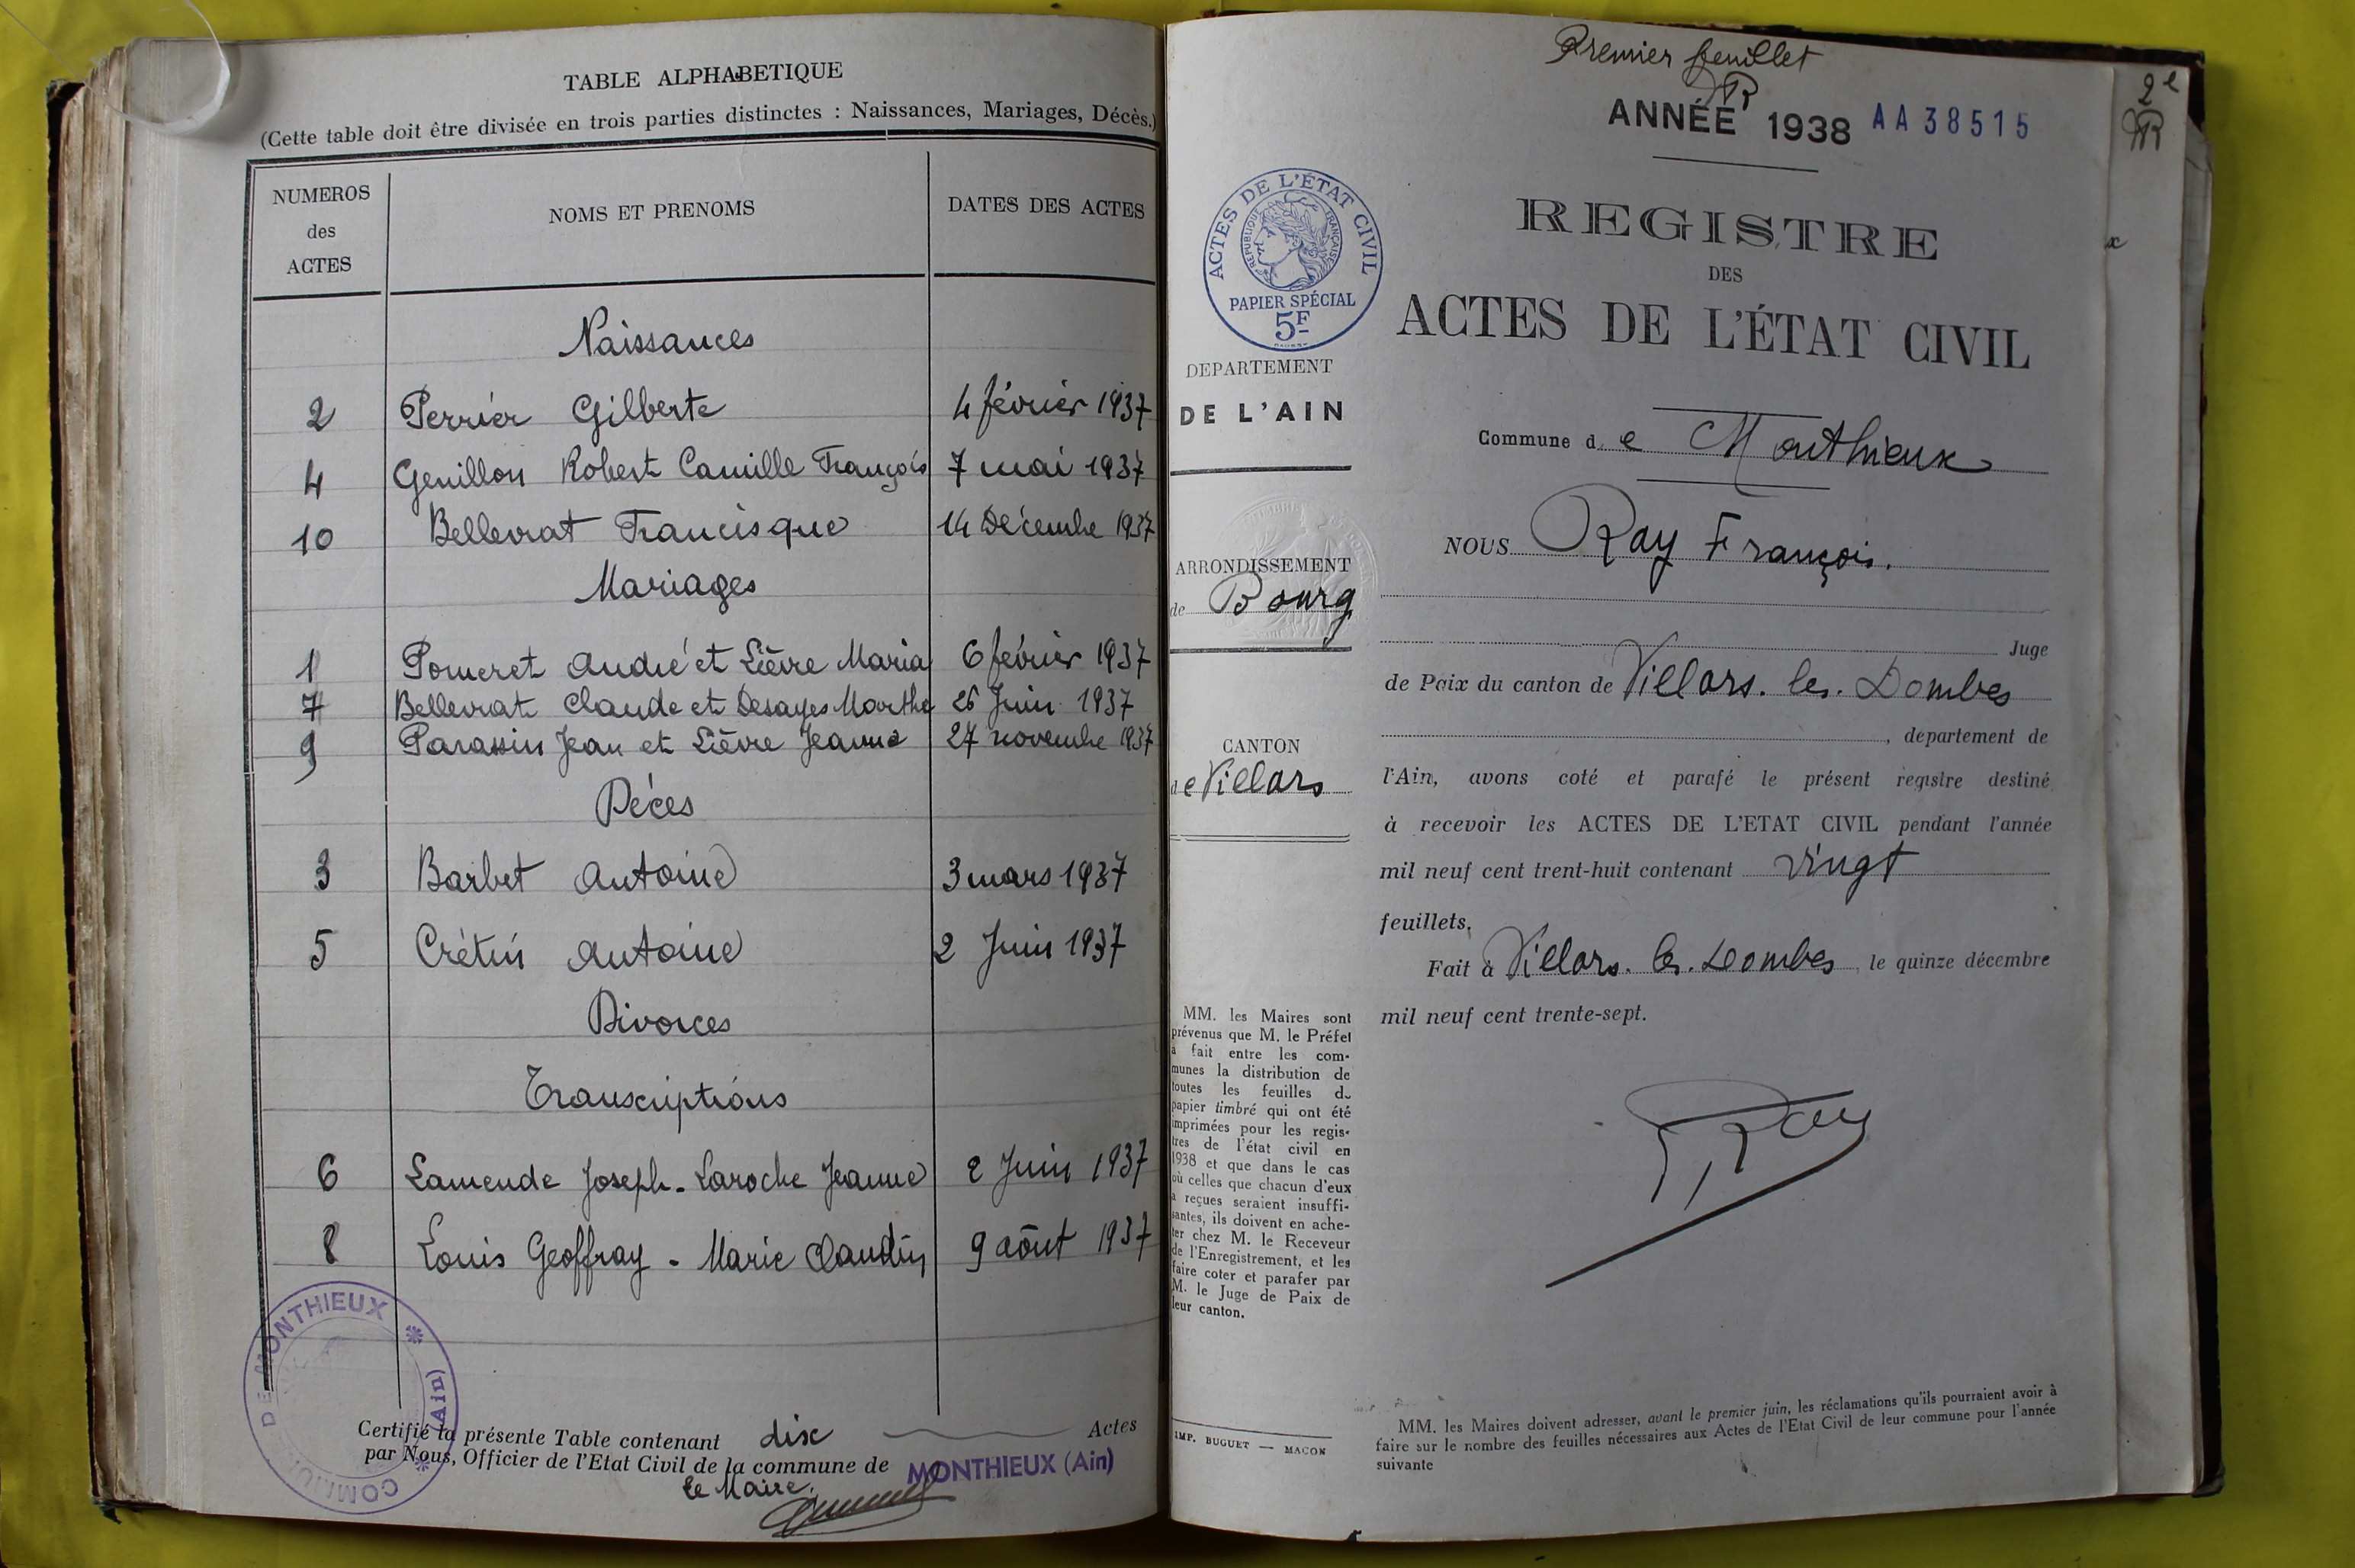 TABLE ALPHABETIQUE
(Cette table doit être divisée en trois parties distinctes : Naissances, Mariages, Décès.)
NUMEROS des ACTES
NOMS ET PRENOMS
DATES DES ACTES
Naissances
2 Perrier Gilberte 4 février 1937
4 Genillon Robert Camille François 7 mai 1937
10 Bellevrat Francisque 14 Décembre 1937
Mariages
1 Pomeret André et Lièvre Maria 6 février 1937
7 Bellevrat Claude et Desayes Marthe 26 Juin 1937
9 Parassin Jean et Lièvre Jeanne 27 novembre 1937
Décès
3 Barbet Antoine 3 mars 1937
5 Crétin Antoine 2 Juin 1937
Divorces
Transcriptions
6 Lamende Joseph - Laroche Jeanne 2 Juin 1937
8 Louis Geoffray - Marie Claudin 9 août 1937
Certifié la présente Table contenant dix Actes
par Nous, Officier de l'Etat Civil de la commune de MONTHIEUX (Ain)
Le Maire,
COMMUNE DE MONTHIEUX (Ain)
Premier feuillet
ANNÉE 1938 AA38515
2e
ACTES DE L'ÉTAT CIVIL
REPUBLIQUE FRANÇAISE
PAPIER SPÉCIAL
5F
REGISTRE
DES
ACTES DE L'ÉTAT CIVIL
DEPARTEMENT
DE L'AIN
ARRONDISSEMENT
de Bourg
CANTON
de Villars
Commune de Monthieux
NOUS Ray François.
Juge
de Paix du canton de Villars. les. Dombes
, departement de
l'Ain, avons coté et parafé le présent registre destiné
à recevoir les ACTES DE L'ETAT CIVIL pendant l'année
mil neuf cent trent-huit contenant vingt
feuillets.
Fait à Villars. les. Dombes, le quinze décembre
mil neuf cent trente-sept.
Ray
MM. les Maires sont
prévenus que M. le Préfet
a fait entre les com-
munes la distribution de
toutes les feuilles de
papier timbré qui ont été
imprimées pour les regis-
tres de l'état civil en
1938 et que dans le cas
où celles que chacun d'eux
a reçues seraient insuffi-
santes, ils doivent en ache-
ter chez M. le Receveur
de l'Enregistrement, et les
faire coter et parafer par
M. le Juge de Paix de
leur canton.
IMP. BUGUET — MACON
MM. les Maires doivent adresser, avant le premier juin, les réclamations qu'ils pourraient avoir à
faire sur le nombre des feuilles nécessaires aux Actes de l'Etat Civil de leur commune pour l'année
suivante